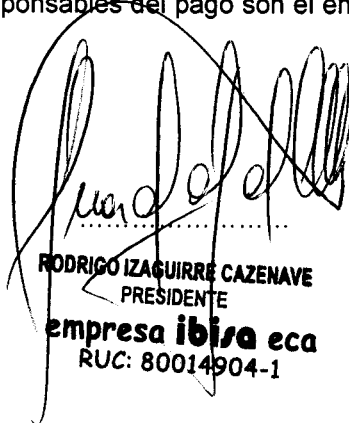 ponsables del pago son el en
RODRIGO IZAGUIRRE CAZENAVE
PRESIDENTE
empresa ibisa eca
RUC: 80014904-1